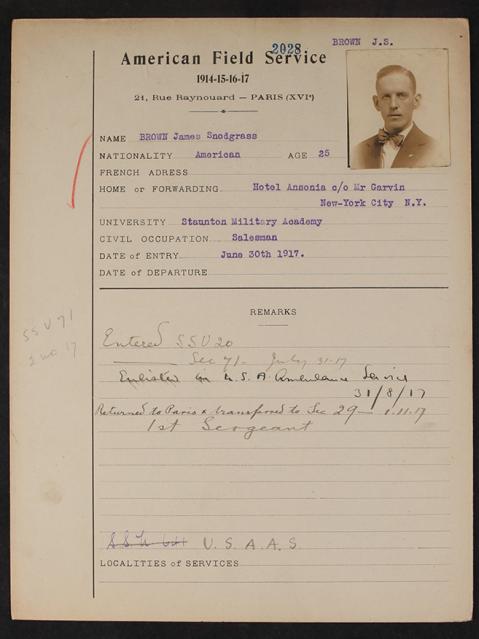 2028
BROWN J.S.
American Field Service
1914-15-16-17
21, Rue Raynouard — PARIS (XVIe)
NAME BROWN James Snodgrass
NATIONALITY American AGE 25
FRENCH ADRESS
HOME or FORWARDING. Hotel Ansonia c/o Mr Garvin
New-York City N.Y.
UNIVERSITY Staunton Military Academy
CIVIL OCCUPATION Salesman
DATE of ENTRY June 30th 1917.
DATE of DEPARTURE
REMARKS
SSU 71
2 no 17
Entered S.S.U 20
Sec 71- July 31-17
Enlisted in U.S.A Ambulance Service
31/8/17
Returned to Paris & transferred to Sec 29 — 1.11.17
1st Sergeant
S.S.U 641 U.S.A.A.S.
LOCALITIES of SERVICES